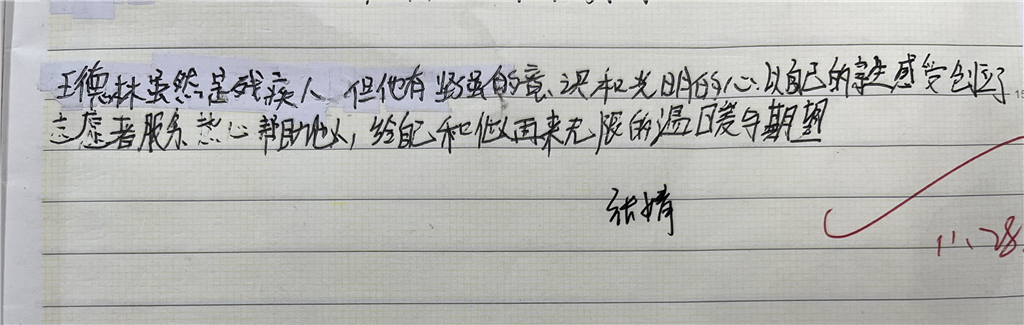 王德林虽然是残疾人 但他有坚强的意识和光明的心.以自己的亲生感受创立了
志愿者服务 热心帮助他人, 给自己和他人带来无限的温暖与期望
张婧
11.28.